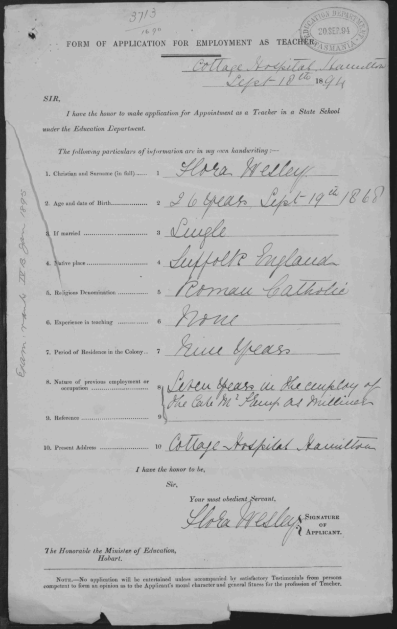 3713
EDUCATION DEPARTMENT
20 SEP. 94
TASMANIA
FORM OF APPLICATION FOR EMPLOYMENT AS TEACHER
Cottage Hospital Hamilton
Sept 18th 1894
SIR,
I have the honor to make application for Appointment as a Teacher in a State School
under the Education Department.
The following particulars of information are in my own handwriting:—
1. Christian and Surname (in full) 1 Flora Wesley
2. Age and date of Birth 2 26 years Sept 19th 1868
3. If married 3 Single
4. Native place 4 Suffolk England
5. Religious Denomination 5 Roman Catholic
6. Experience in teaching 6 None
7. Period of Residence in the Colony 7 Nine years
8. Nature of previous employment or occupation 8 Seven years in the employ of
9. Reference 9 the late Mr Kemp as Milliner
10. Present Address 10 Cottage Hospital Hamilton
I have the honor to be,
Sir,
Your most obedient Servant,
Flora Wesley SIGNATURE OF APPLICANT.
The Honorable the Minister of Education,
Hobart.
NOTE.—No application will be entertained unless accompanied by satisfactory Testimonials from persons
competent to form an opinion as to the Applicant's moral character and general fitness for the profession of Teacher.
Jan 1895